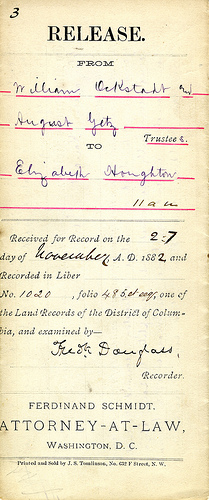 3
RELEASE.
FROM
William Ockstadt and
August Getz
Trustees.
TO
Elizabeth Houghton
11 am
Received for Record on the 27
day of November A. D. 1882 and
Recorded in Liber
No. 1020 , folio 485 et seq, one of
the Land Records of the District of Colum-
bia, and examined by—
Fredk Douglass,
Recorder.
FERDINAND SCHMIDT,
ATTORNEY-AT-LAW,
WASHINGTON, D. C.
Printed and Sold by J. S. Tomlinson, No. 632 F Street, N. W.